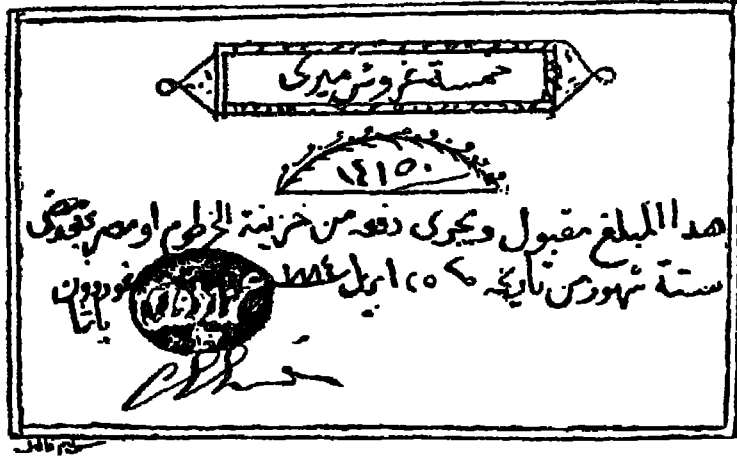 خمسة غروش ميرى
١٤١٥٠
هذا المبلغ مقبول ويجرى دفعه من خزينة الخرطوم او مصر بعد مضى
ستة شهور من تاريخه ٢٥ ابريل ١٨٨٤
غوردون
باشا